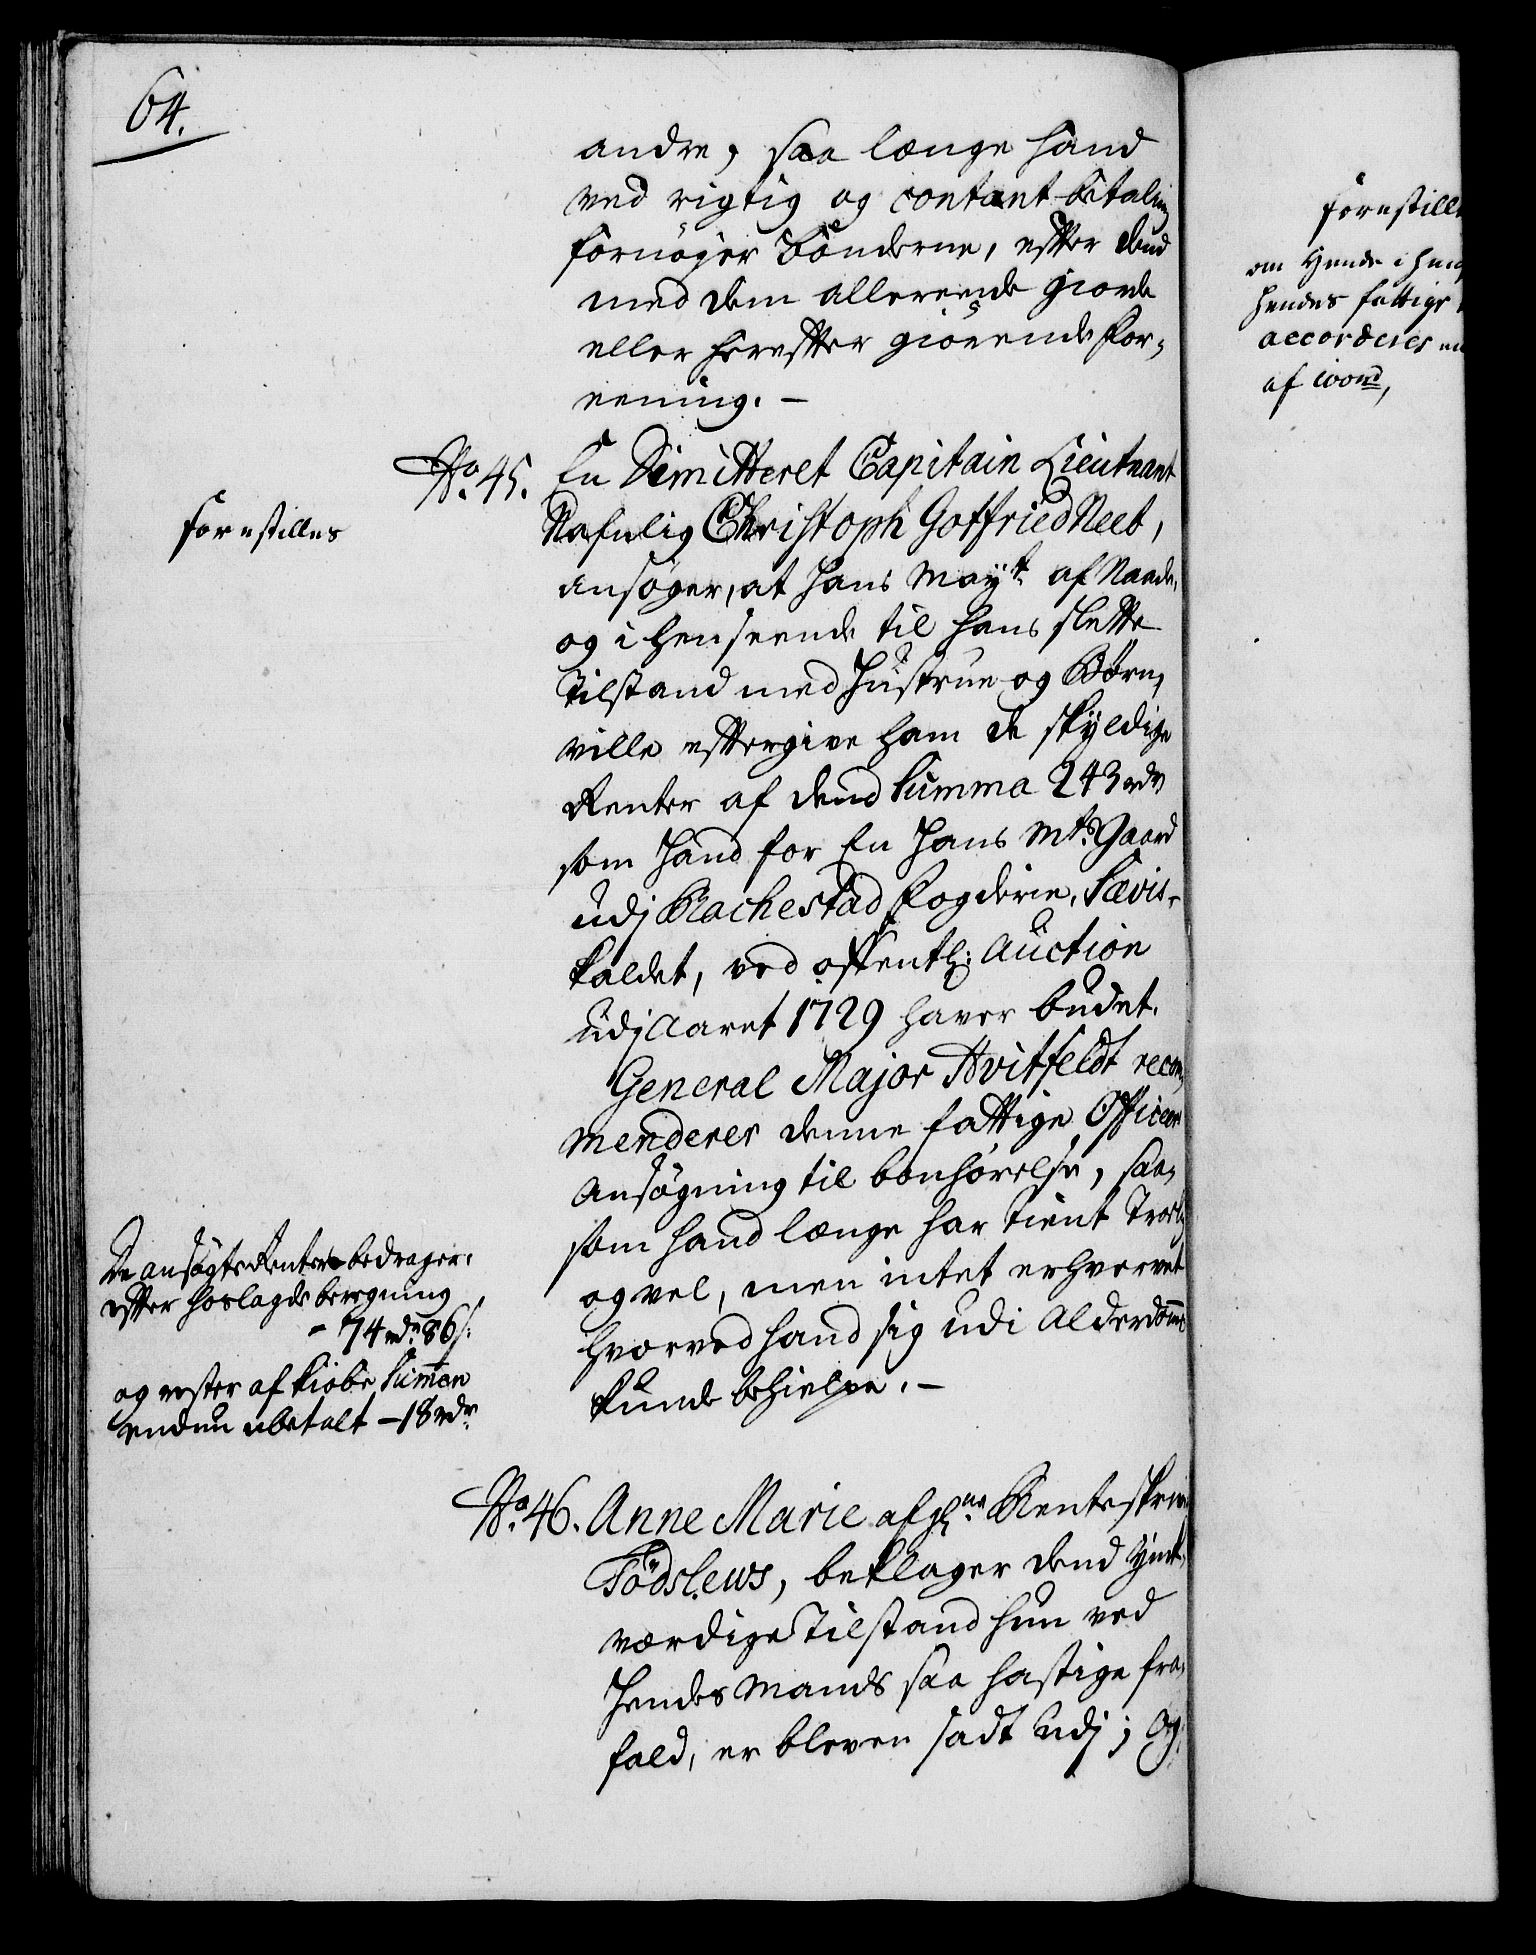 64.
andre, saa længe hand
ved rigtig og contant betaling
fornøjer Bönderne, efter dend
med dem allereede giorde
eller herefter giörende For-
eening. -
No. 45. En Dimitteret Capitain Lieutnant
forestilles
Nafnlig Christoph Gotfried Neeb,
ansøger, at Hans Mayt. af Naade,
og i henseende til hans slette
Tilstand med Hustrue og Børn,
ville eftergive ham de skyldige
Renter af dend Summa 243 rdr
som Hand for En Hans Mts. Gaard
udj Rachestad Fogderie, Sævis-
kaldet, ved offentl: Auction
udj Aaret 1729 haver budet.
General Major Hvitfeldt recom-
menderer denne fattige Officeer
Ansøgning til bønhørelse, saa-
som hand længe har tient Troel:
og vel, men intet erhvervet
hvorved hand sig udi Alderdomm
kunde behielpe. -
De ansøgte Renter bedrager
efter hoslagde beregning
- 74 rdr 86 s:
og rester af Kiøbe Summen
endnu ubetalt - 18 rdr.
No. 46. Anne Marie afgl. Renteskriv
Födslews, beklager dend ynk-
værdige Tilstand hun ved
Hendes Mands saa hastige fra-
fald, er bleven sadt udj; Og
forestill
om Hende i
hendes fattige
accorderes en
af 100 rd,